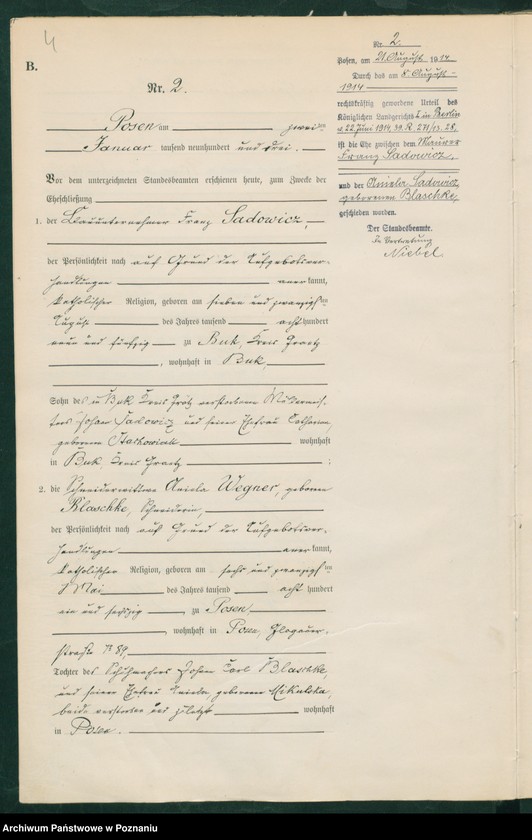 4
B.
Nr. 2.
Posen am zwei ten
Januar tausend neunhundert und drei.
Vor dem unterzeichneten Standesbeamten erschienen heute, zum Zwecke der
Eheschließung
1. der Bauunternehmer Franz Sadowicz,
der Persönlichkeit nach auf Grund der Aufgebotsver-
handlungen anerkannt,
katholischer Religion, geboren am sieben und zwanzigsten
August des Jahres tausend acht hundert
neun und fünfzig zu Buk, Kreis Graetz
, wohnhaft in Buk,
Sohn des zu Buk Kreis Grätz verstorbenen
Johann Sadowicz und seiner Ehefrau Catharina,
geborene wohnhaft
in Buk, Kreis Graetz ;
2. die Schneiderwittwe Aniela Wegner, geborene
Blaschke, Schneiderin,
der Persönlichkeit nach auf Grund der Aufgebotsver-
handlungen anerkannt,
katholischer Religion, geboren am sechs und zwanzigsten
Mai des Jahres tausend acht hundert
ein und sechzig , zu Posen
, wohnhaft in Posen, Glogauer-
straße N 89,
Tochter des Schuhmachers Johann Carl Blaschke,
und seiner Ehefrau Aniela, geborenen Mikulska,
beide verstorben und zuletzt wohnhaft
in Posen.
Nr. 2.
Posen, am 21. August 1914
Durch das am 8. August
1914
rechtskräftig gewordene Urteil des
Königlichen Landgerichts I in Berlin
v 22. Juni 1914 39. R. 271/13. 28.
ist die Ehe zwischen dem Maurer
Franz Sadowicz
und der Aniela Sadowicz
geborenen Blaschke,
geschieden worden.
Der Standesbeamte.
In Vertretung
Niebel
Archiwum Państwowe w Poznaniu